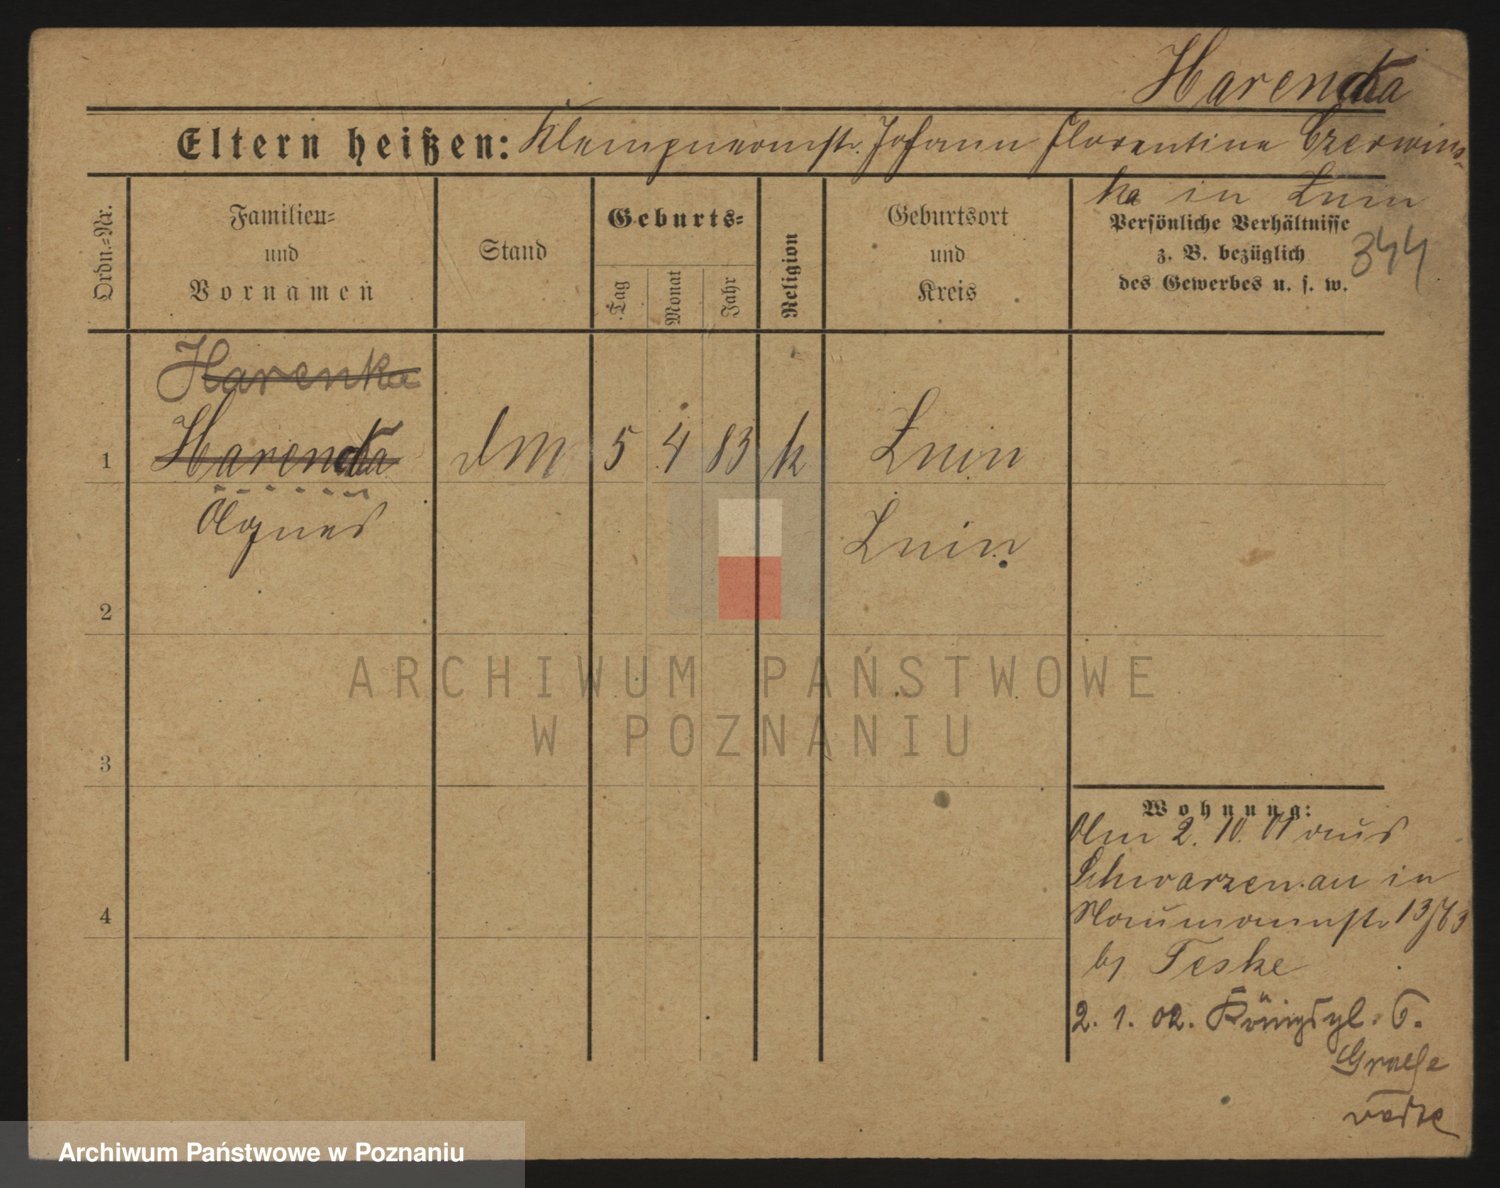 Harenda
Eltern heißen: Klempnermstr. Johann Florentine Czerwins-
ka in Znin
Ordn.-Nr.
Familien-
und
Vornamen
Stand
Geburts-
Tag
Monat
Jahr
Religion
Geburtsort
und
Kreis
Persönliche Verhältnisse
z. B. bezüglich
des Gewerbes u. s. w.
344
Harenka
1 Harenda dM 5 4 83 k Znin
Agnes Znin
2
ARCHIWUM PAŃSTWOWE
W POZNANIU
3
Wohnung:
Am 2. 10. 01 aus
Schwarzenau in
Naumannstr. 13/
4
bj Teske
2. 1. 02. Königspl. 6.
Graefe
Archiwum Państwowe w Poznaniu